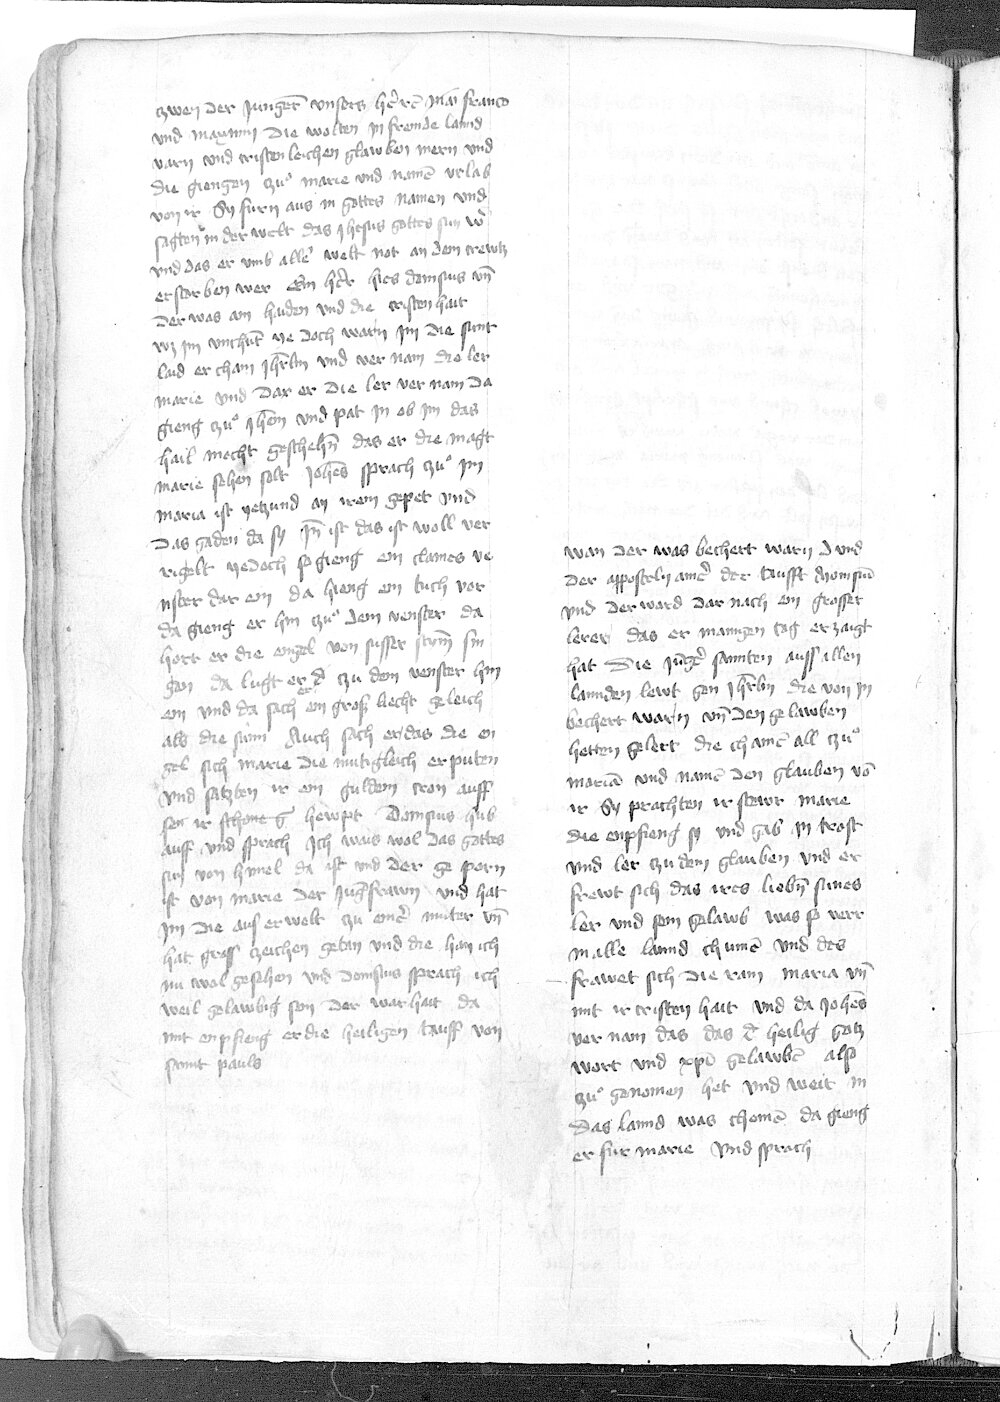 zwen der Jungeɼ̄ unsers h̄rē Mār franco
und maximin die wolten in fremde lannd
varn und cristenleichen glawben mern und
die giengen zuͦ marie und namē urlab
von ir Sy furn aus in gottes namen und
sagten in der welt das Jhesus gottes sun w̄
und das er umb alle welt not an dem crewtz
erstorben wer Ein h̄r hies domsius un̄
der was ain haiden und die cristenhait
im unchūt ye doch warn im die sunt
laid er cham Jhrlm und ver nam die ler
marie und dar er die ler ver nam da
gieng zuͦ Joh̄em und pat in ob im das
hail mocht geschehn̄ das er die magt
marie sehen solt Joh̄es sprach zuͦ im
maria ist yetzund an irem gepet und
das gaden da sy In̄ ist das ist woll ver
rigelt yedoch so gieng ein claines ve
nster dar ein da hieng ein tuch vor
da gieng er hin zuͦ dem venster da
hort er die engel von susser stym̄ sin
gen da lugt er zu dem venster hin
ein und da sach er ein groß liecht geleich
als die sunn Auch sach er das die en
gel sich marie die mutigleich erputen
und satzten ir ein guldein cron auff
ir schone hewpt Domsius hub
auff und sprach Ich wais wol das gottes
sun von himel da ist und der geporn
ist von marie der Jungfrawn und hat
im die auserwelt zu einer muter un̄
hat gross zeichen getan und die han ich
nu wol gesehen und Domsius sprach ich
weil gelawbig sein der warhait da
mit enpfieng er die heiligen tauff von
sannt pauls
wan der was bechert warn und
der apposteln ainer der taufft domsiū
und der ward dar nach ein grosser
lerer das er manigen tag erzaigt
hat Die Jūgeɼ̄ sannten auss allen
lannden lewt gen Jhrlm die von in
bechert warn un̄ den gelawben
hetten gelert die chamē all zuͦ
mariā und namē den glauben vō
ir Sy prachten ir stewr marie
die enpfieng sy und gab in trost
und ler zu dem glauben und er
frewt sich das ires liebn̄ sunes
ler und sein gelawb was so verr
in alle lannd chumē und des
frawet sich die rain maria un̄
mit ir cristenhait und da Joh̄es
ver nam das das d̄ heilig gotz
wort und xp̄i gelawbē also
zuͦ genomen het und weit in
das lannd was chomē da gieng
er fur marie und sprach